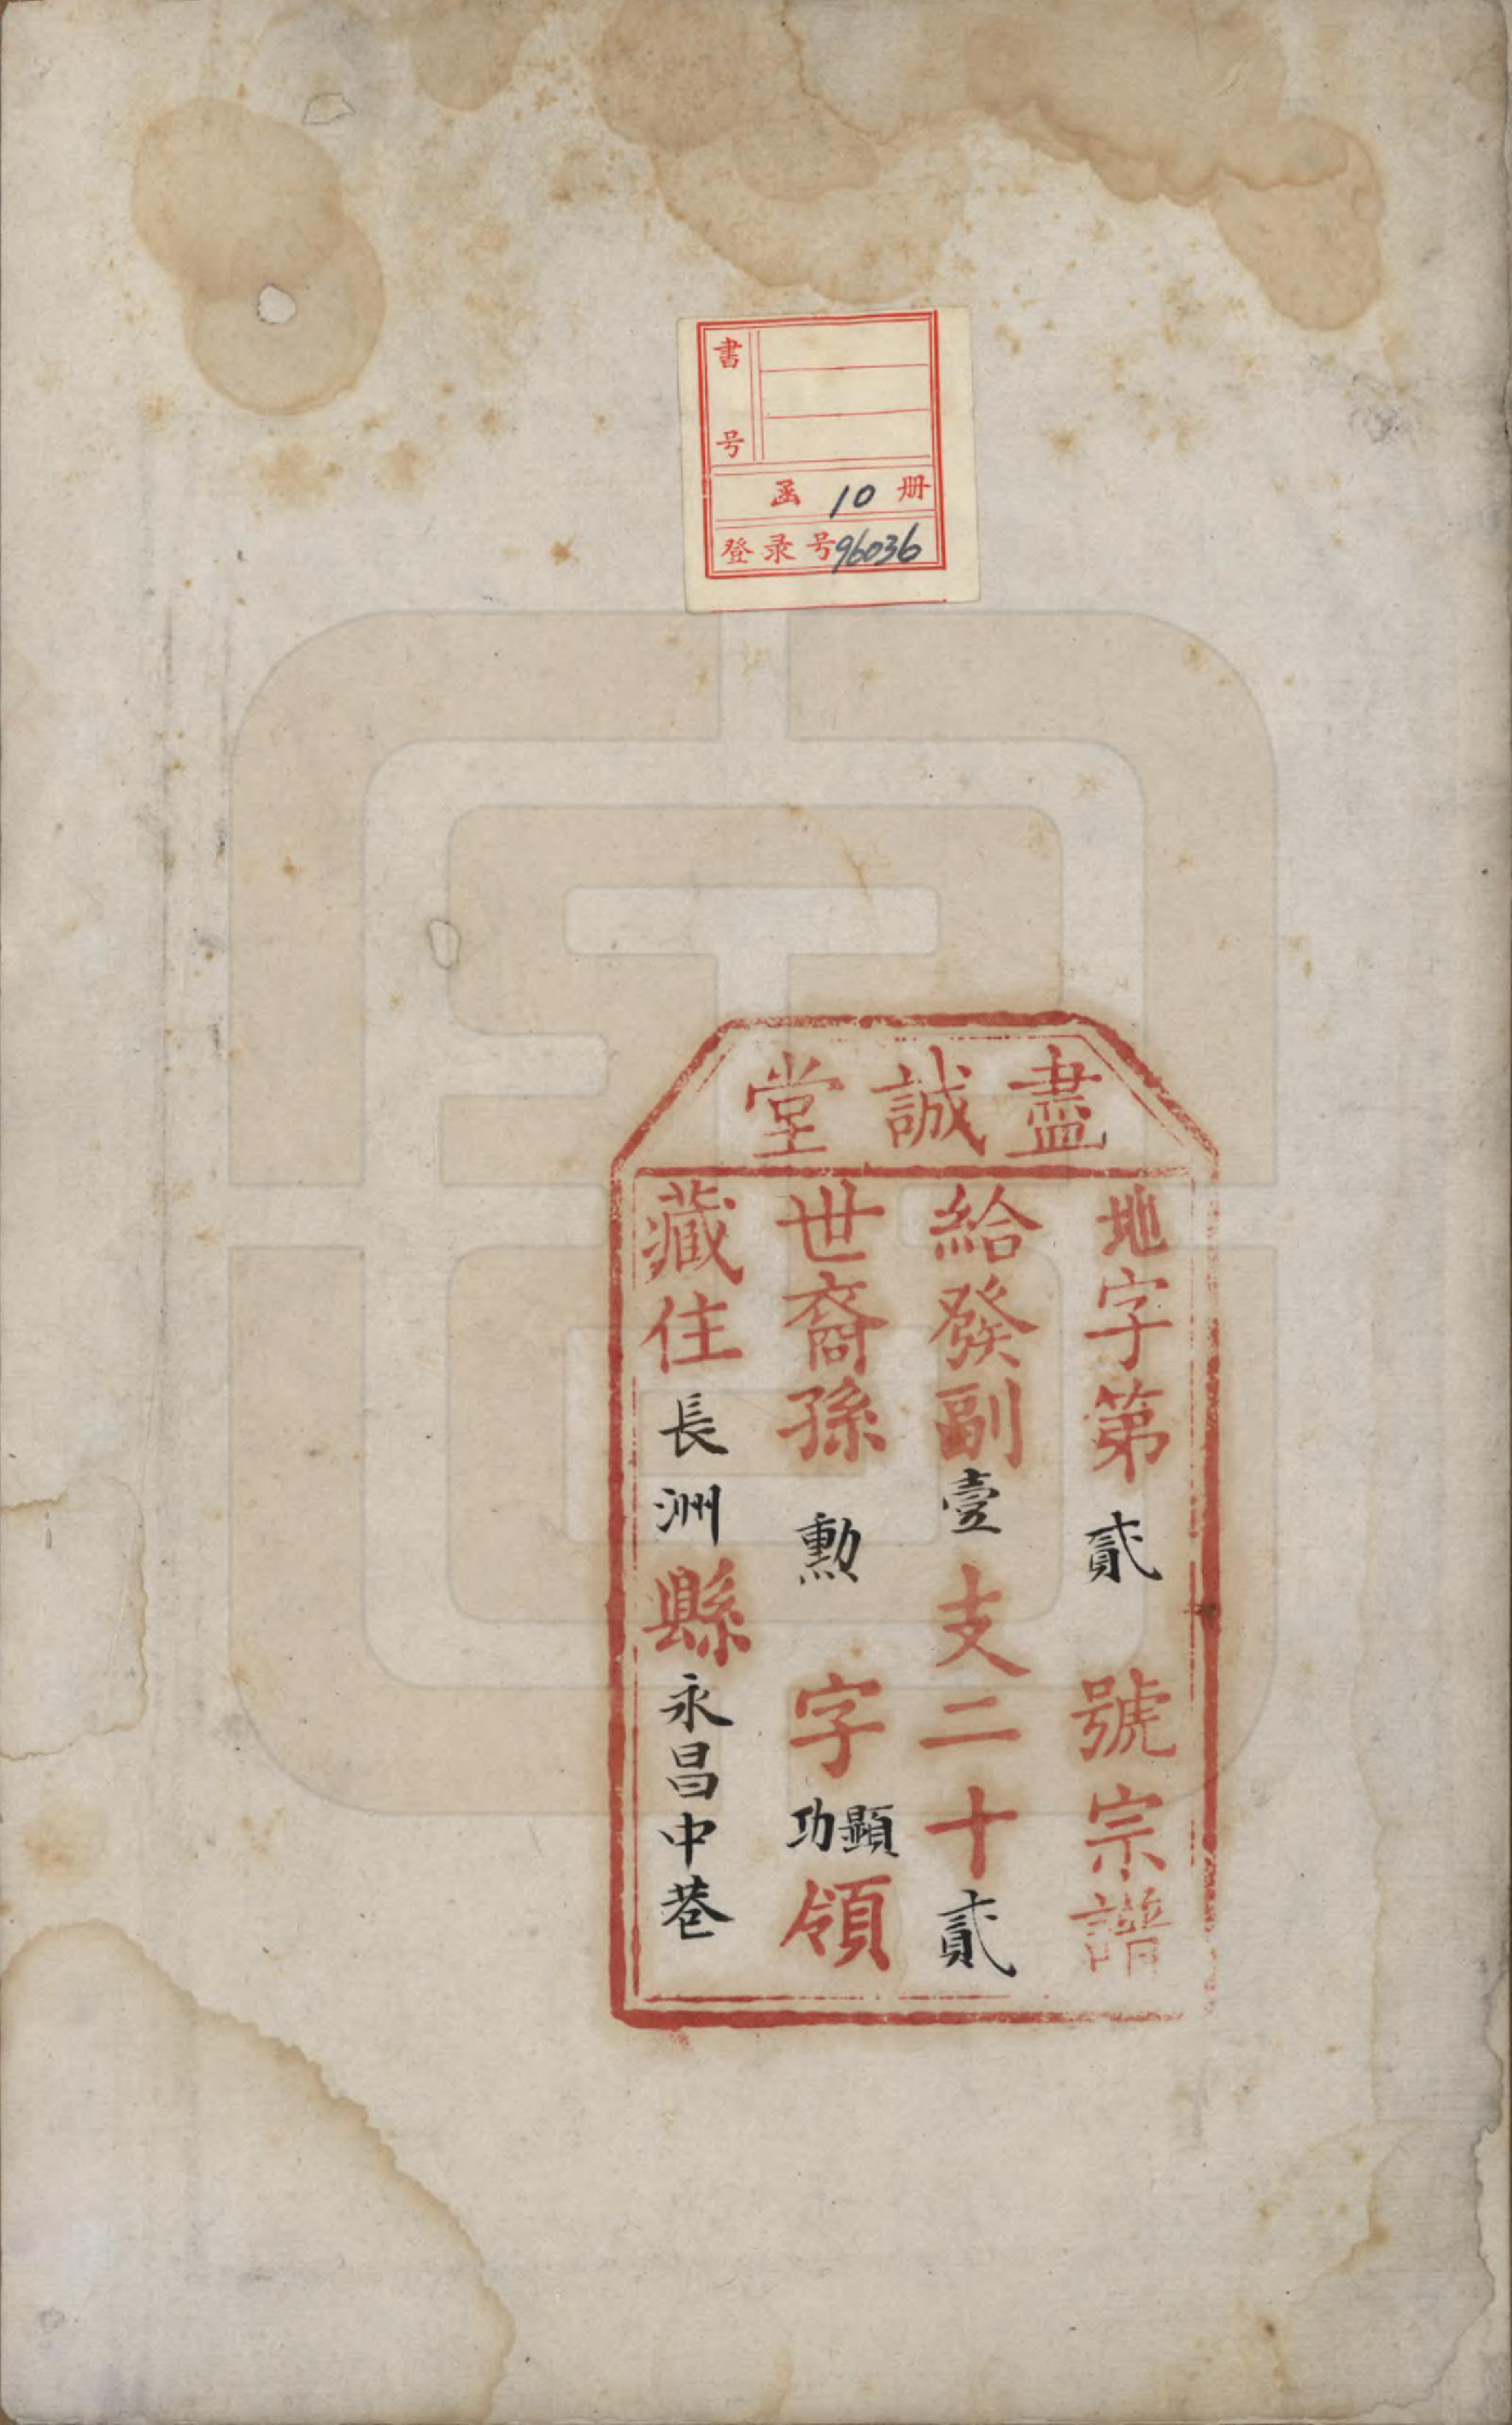 書号
函 10 册
登录号96036
盡誠堂
地字第貳號宗譜
給發副壹支二十貳
世裔孫勳字顯功領
藏住長洲縣永昌中巷